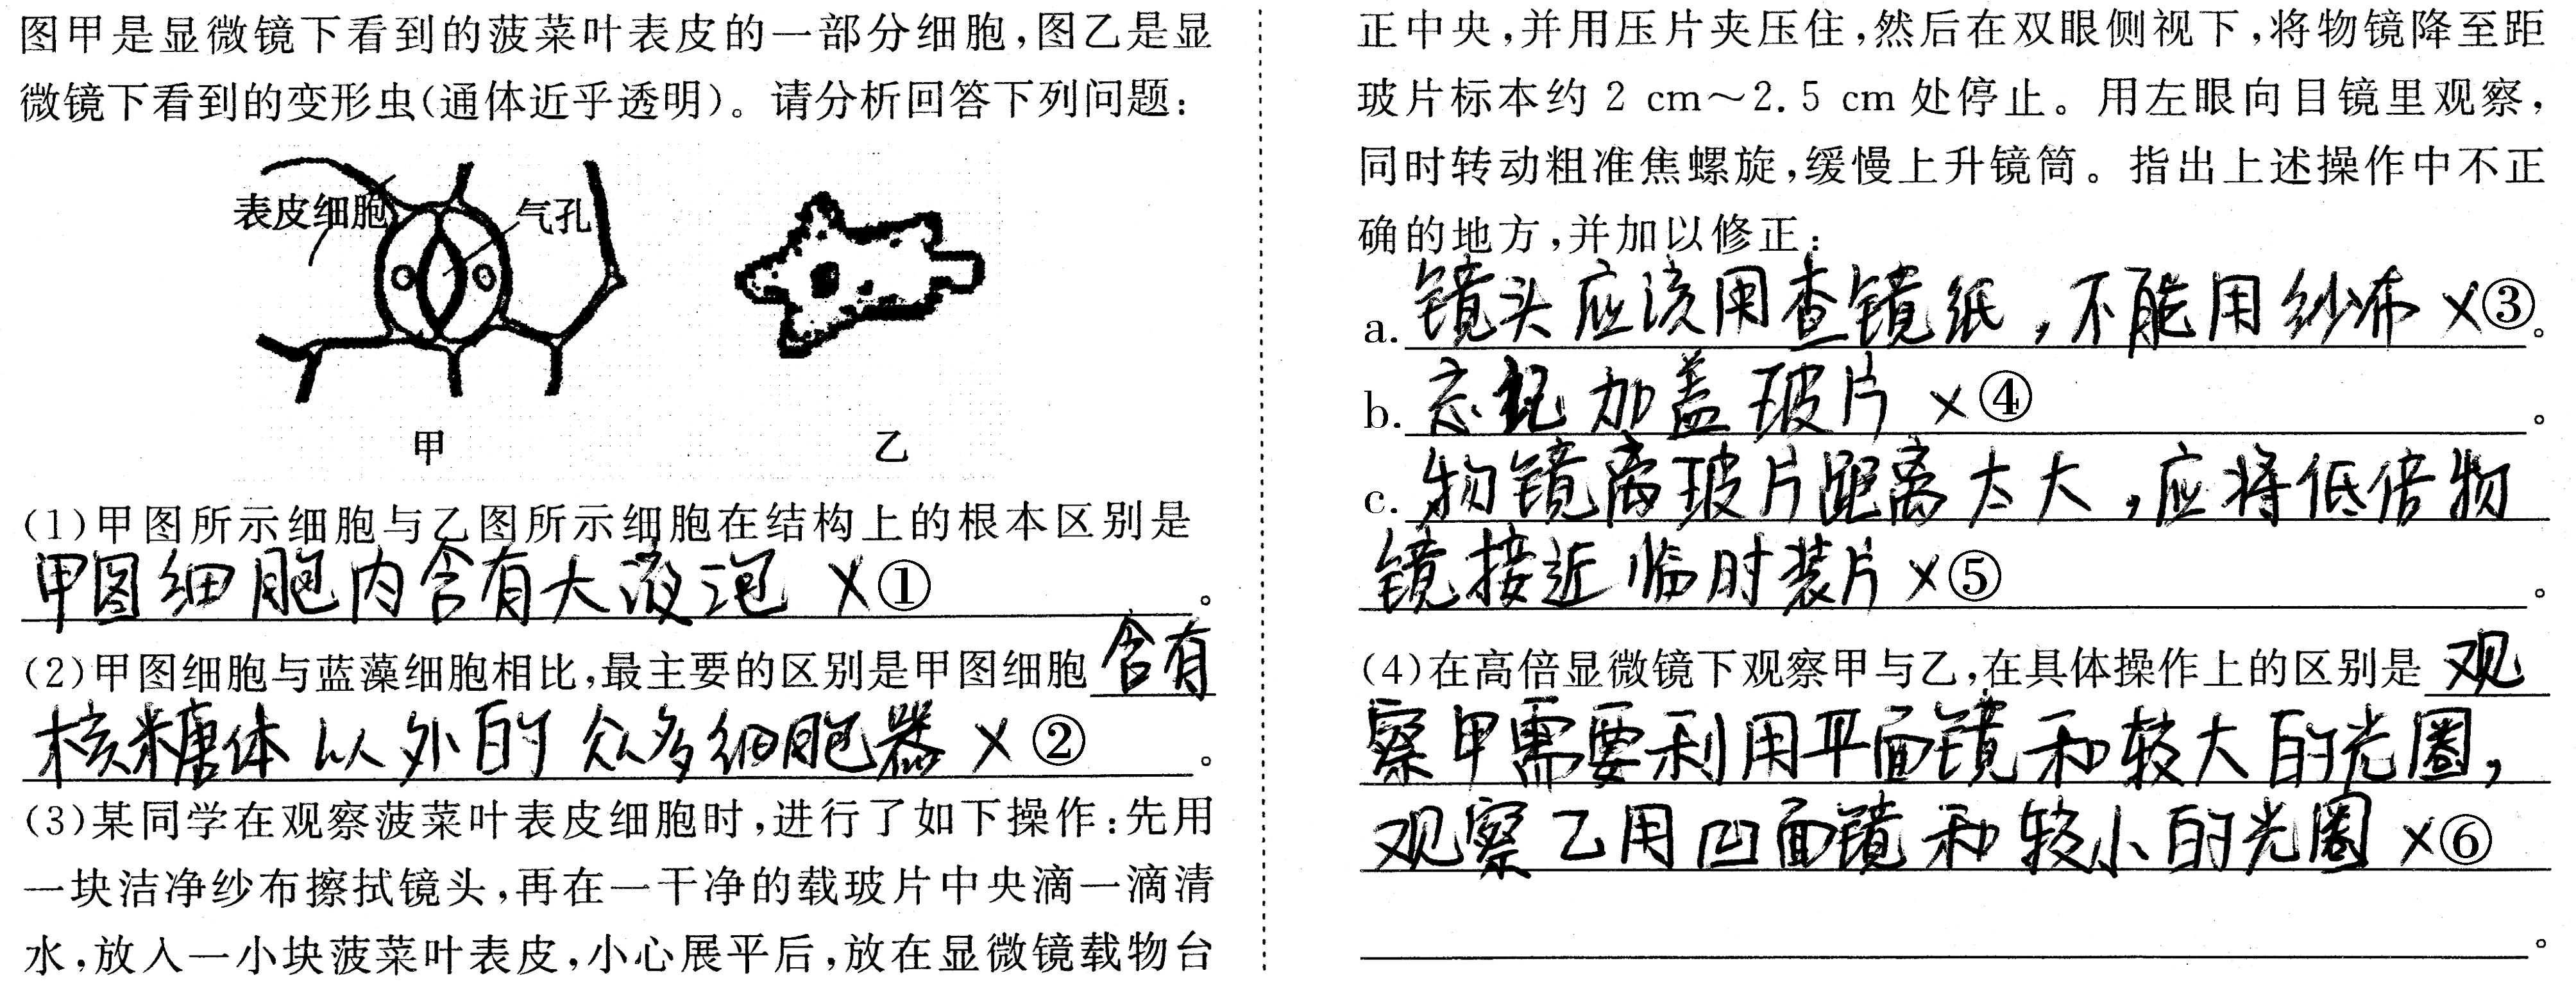 图甲是显微镜下看到的菠菜叶表皮的一部分细胞,图乙是显
微镜下看到的变形虫(通体近乎透明)。请分析回答下列问题:
表皮细胞
气孔
甲
乙
(1)甲图所示细胞与乙图所示细胞在结构上的根本区别是
甲图细胞内含有大液泡 ×①。
(2)甲图细胞与蓝藻细胞相比,最主要的区别是甲图细胞含有
核糖体以外的众多细胞器 ×②。
(3)某同学在观察菠菜叶表皮细胞时,进行了如下操作:先用
一块洁净纱布擦拭镜头,再在一干净的载玻片中央滴一滴清
水,放入一小块菠菜叶表皮,小心展平后,放在显微镜载物台
正中央,并用压片夹压住,然后在双眼侧视下,将物镜降至距
玻片标本约 2 cm～2.5 cm 处停止。用左眼向目镜里观察,
同时转动粗准焦螺旋,缓慢上升镜筒。指出上述操作中不正
确的地方,并加以修正:
a.镜头应该用查镜纸,不能用纱布 ×③。
b.忘记加盖玻片 ×④。
c.物镜离玻片距离太大,应将低倍物
镜接近临时装片 ×⑤。
(4)在高倍显微镜下观察甲与乙,在具体操作上的区别是观
察甲需要利用平面镜和较大的光圈,
观察乙用凹面镜和较小的光圈 ×⑥
。